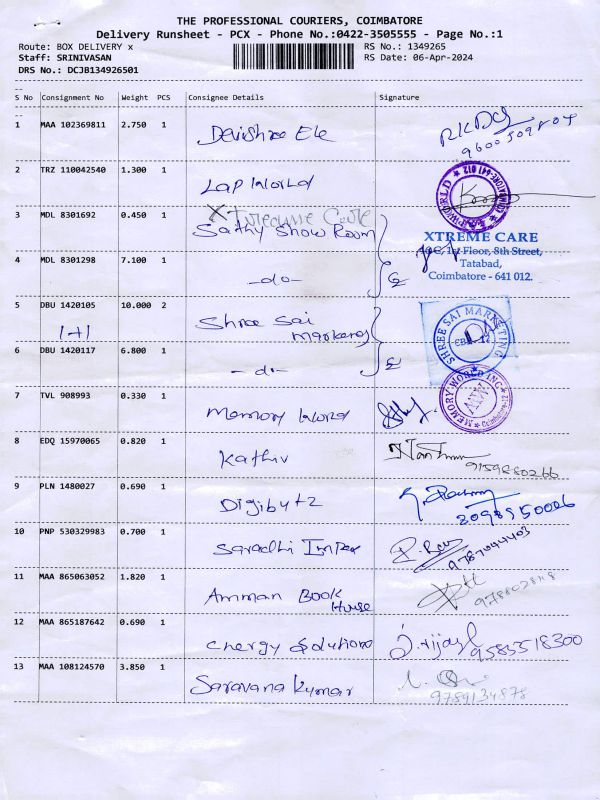 THE PROFESSIONAL COURIERS, COIMBATORE
Delivery Runsheet - PCX - Phone No.:0422-3505555 - Page No.:1
Route: BOX DELIVERY x RS No.: 1349265
Staff: SRINIVASAN RS Date: 06-Apr-2024
DRS No.: DCJB134926501
S No Consignment No Weight PCS Consignee Details Signature
1 MAA 102369811 2.750 1 Devishree Ele
2 TRZ 110042540 1.300 1 Lap World
3 MDL 8301692 0.450 1 Xtreame Care
Sathy Show Room
XTREME CARE
1st Floor, 8th Street,
Tatabad,
Coimbatore - 641 012.
4 MDL 8301298 7.100 1 -do-
5 DBU 1420105 10.000 2 Shree Sai
1+1
SHREE SAI MARKETING
6 DBU 1420117 6.800 1 -do-
7 TVL 908993 0.330 1 Memory World
MEMORY WORLD INC
8 EDQ 15970065 0.820 1 Kathiv
9159880266
9 PLN 1480027 0.690 1
10 PNP 530329983 0.700 1 Saradhi Impex
9787044403
11 MAA 865063052 1.820 1 Amman Book
House
12 MAA 865187642 0.690 1 Energy Solutions
9585518300
13 MAA 108124570 3.850 1 Saravana Kumar
9789134878